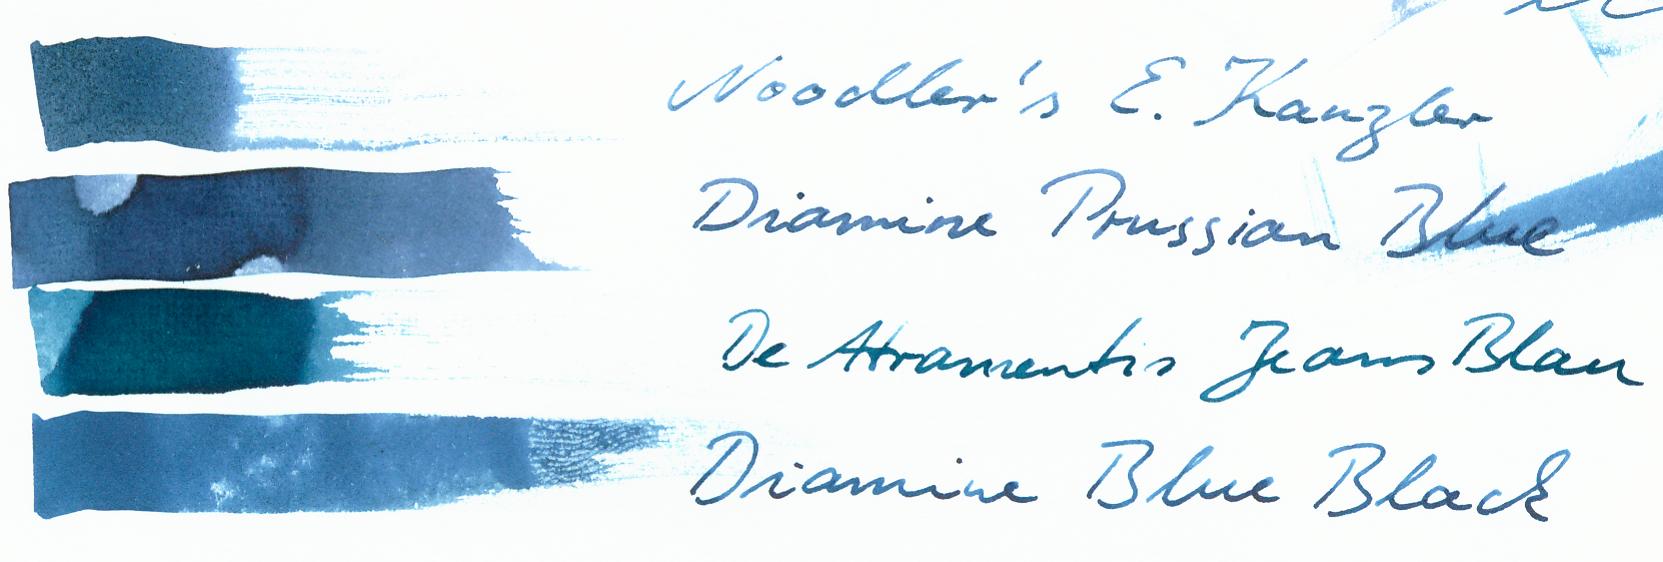 Noodler's E. Kanzler
Diamine Prussian Blue
De Atramentis Jeans Blau
Diamine Blue Black